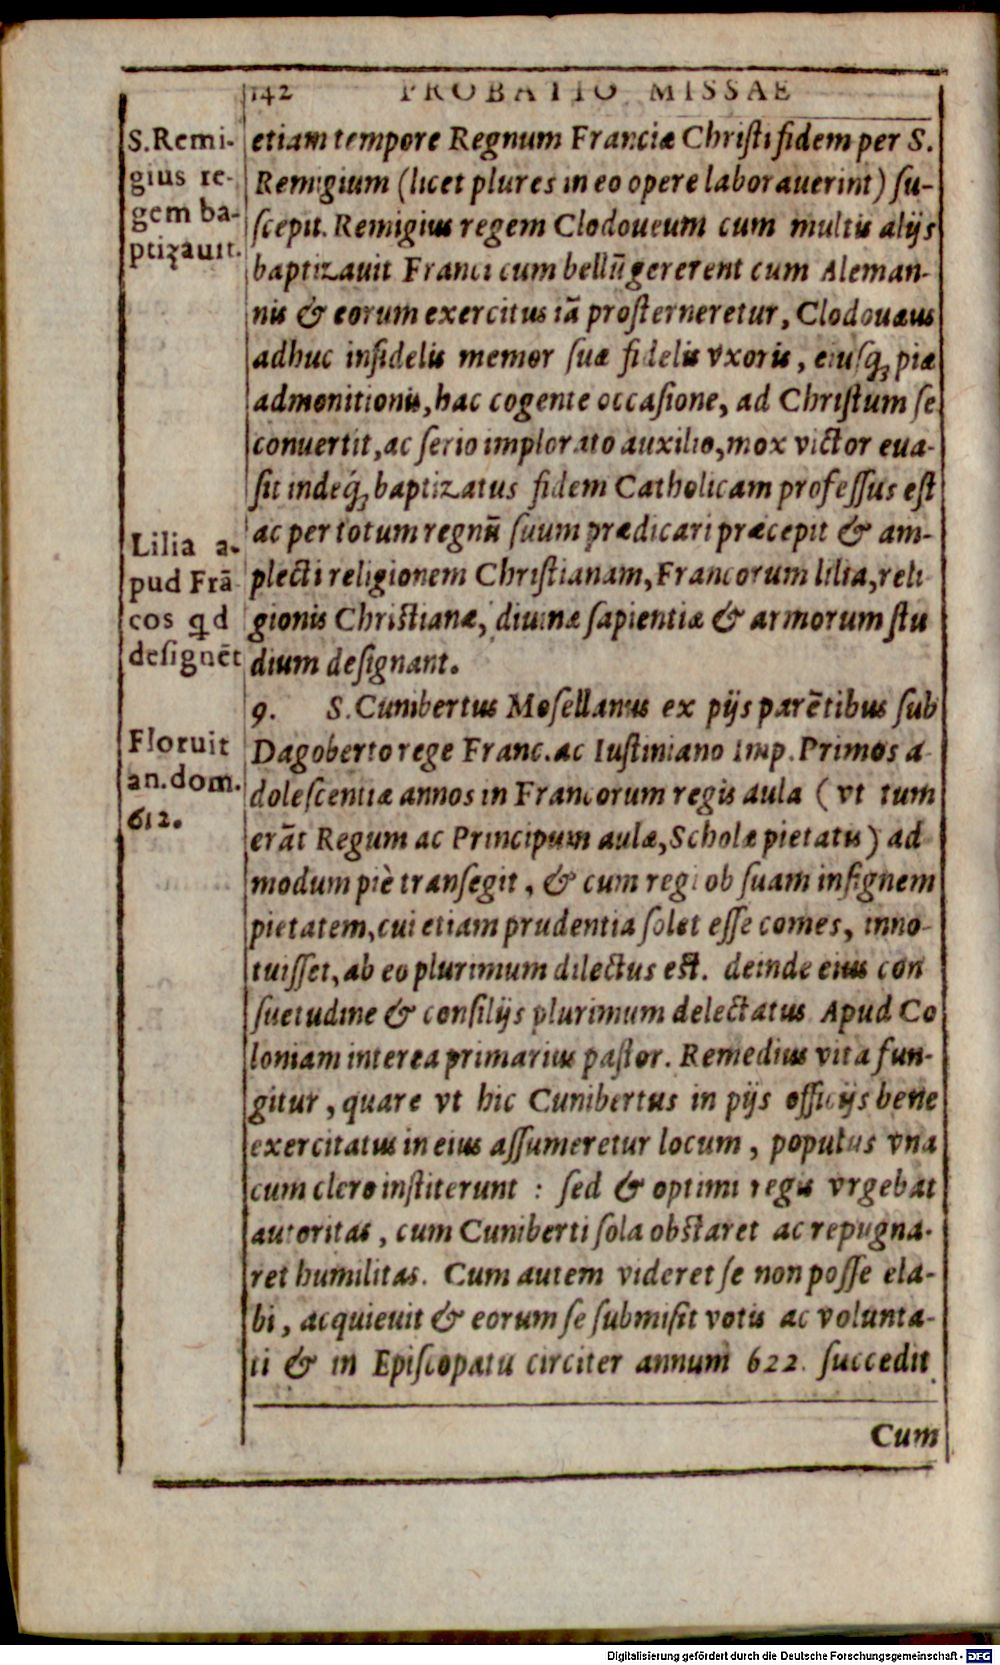 142 PROBATIO MISSAE
S. Remi-
gius re-
gem ba-
ptizauit.
etiam tempore Regnum Franciæ Christi fidem per S.
Remigium (licet plures in eo opere laborauerint) su-
scepit. Remigius regem Clodoueum cum multis alijs
baptizauit Franci cum bellũ gererent cum Aleman-
nis & eorum exercitus iã prosterneretur, Clodouæus
adhuc infidelis memor suæ fidelis vxoris, eiusq; piæ
admonitionis, hac cogente occasione, ad Christum se
conuertit, ac serio implorato auxilio, mox victor eua-
sit indeq́; baptizatus fidem Catholicam professus est
ac per totum regnũ suum prædicari præcepit & am-
plecti religionem Christianam, Francorum lilia, reli
gionis Christianæ, diuinæ sapientiæ & armorum stu
dium designant.
Lilia a-
pud Frã
cos qd
designẽt
9. S. Cunibertus Mosellanus ex pijs parẽtibus sub
Dagoberto rege Franc. ac Iustiniano Imp. Primos a
dolescentiæ annos in Francorum regis aula (vt tum
erãt Regum ac Principum aulæ, Scholæ pietatis) ad
modum piè transegit, & cum regi ob suam insignem
pietatem, cui etiam prudentia solet esse comes, inno-
tuisset, ab eo plurimum dilectus est. deinde eius con
suetudine & consilijs plurimum delectatus Apud Co
loniam interea primarius pastor. Remedius vita fun-
gitur, quare vt hic Cunibertus in pijs officijs bene
exercitatus in eius assumeretur locum, populus vna
cum clero institerunt : sed & optimi regis vrgebat
autoritas, cum Cuniberti sola obstaret ac repugna-
ret humilitas. Cum autem videret se non posse ela-
bi, acquieuit & eorum se submisit votis ac volunta-
ti & in Episcopatu circiter annum 622. succedit
Floruit
an. dom.
612.
Cum
Digitalisierung gefördert durch die Deutsche Forschungsgemeinschaft - DFG